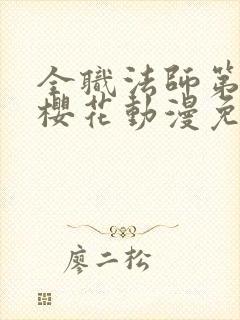 全職法師第
櫻花動漫免
廖二松